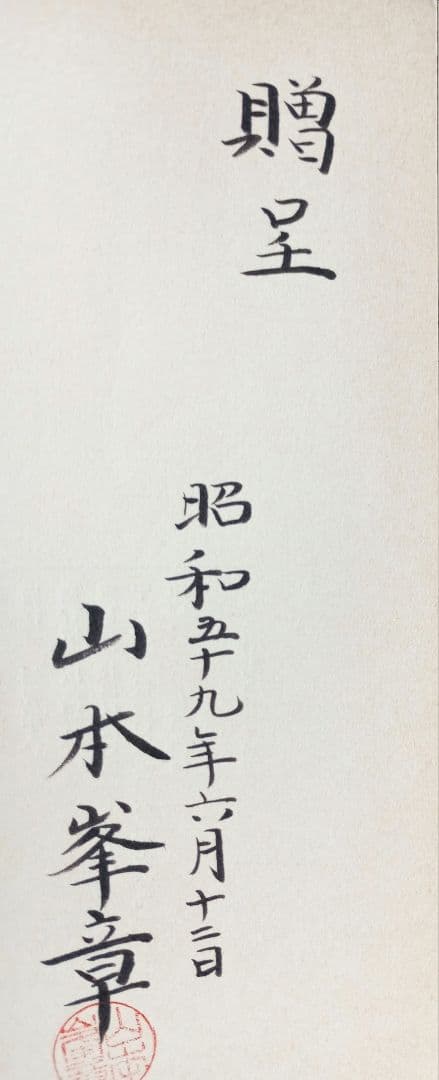 贈呈
昭和五十九年六月十二日
山本峯章